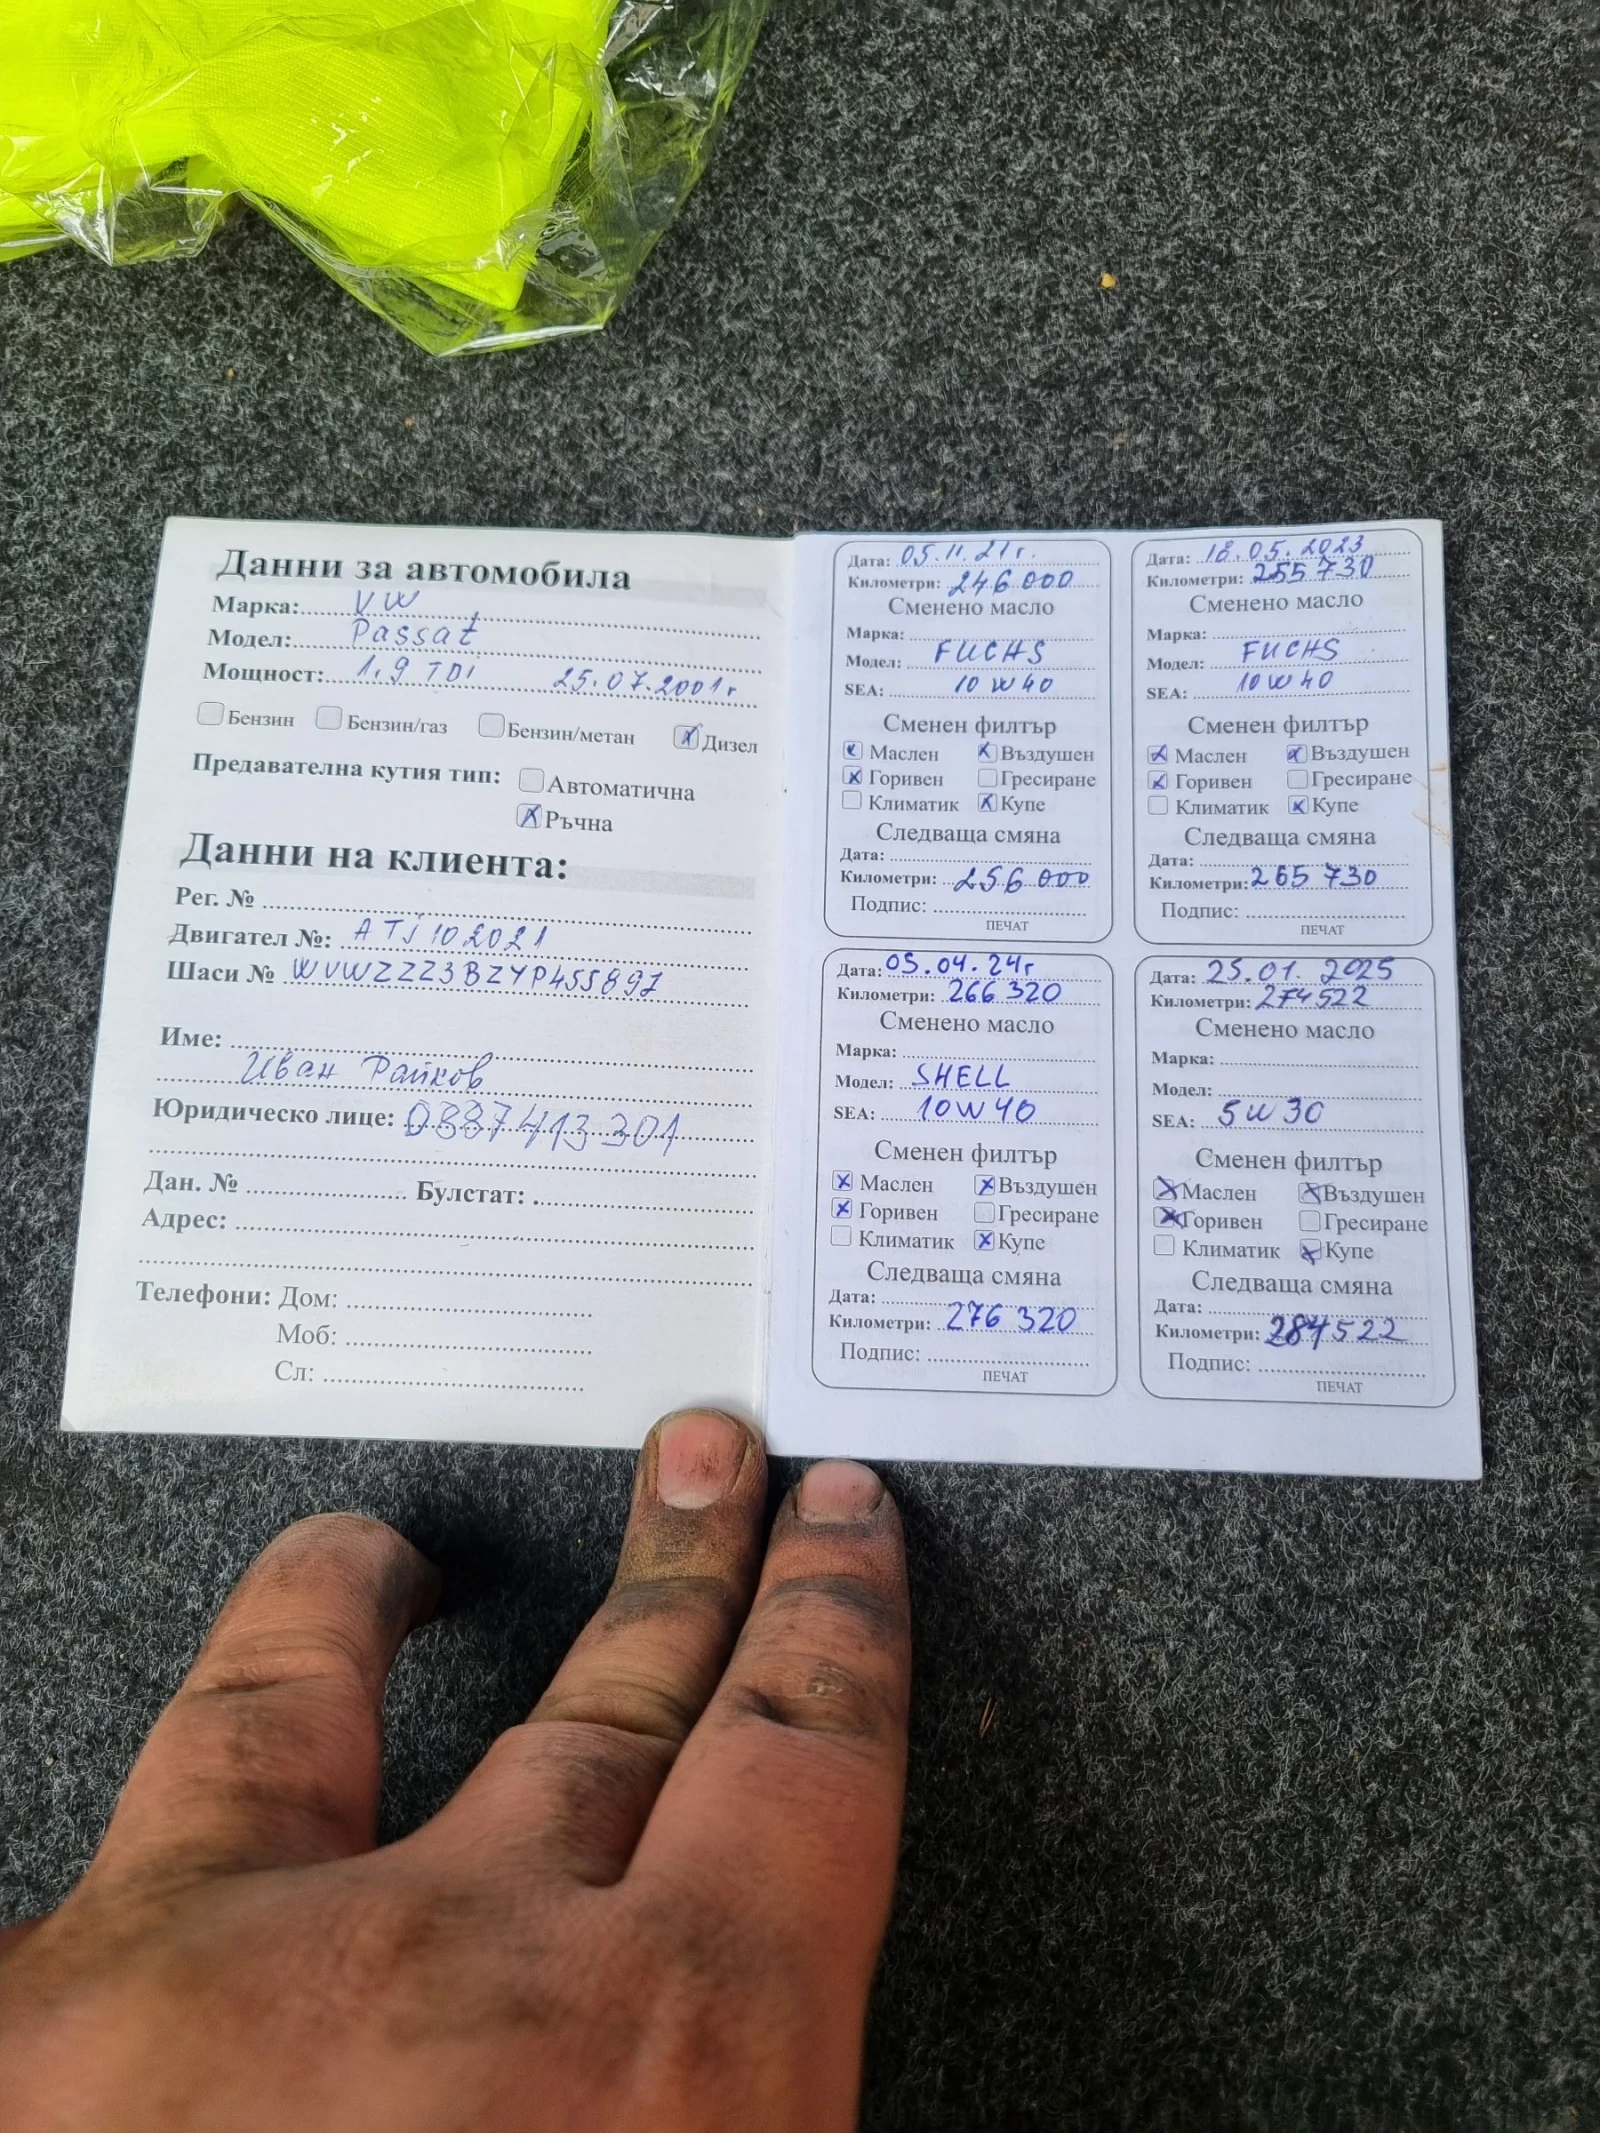 Данни за автомобила
Марка: VW
Модел: Passat
Мощност: 1,9 TDI 25.07.2001г
Бензин Бензин/газ Бензин/метан Дизел
Предавателна кутия тип: Автоматична
Ръчна
Данни на клиента:
Рег. №
Двигател №: ATJ 102021
Шаси № WVWZZZ3BZYP455897
Име:
Иван Райков
Юридическо лице: 0887413301
Дан. № Булстат:
Адрес:
Телефони: Дом:
Моб:
Сл:
Дата: 05.11.21г.
Километри: 246000
Сменено масло
Марка:
Модел: FUCHS
SEA: 10W40
Сменен филтър
Маслен Въздушен
Горивен Гресиране
Климатик Купе
Следваща смяна
Дата:
Километри: 256000
Подпис:
ПЕЧАТ
Дата: 18.05.2023
Километри: 255730
Сменено масло
Марка:
Модел: FUCHS
SEA: 10W40
Сменен филтър
Маслен Въздушен
Горивен Гресиране
Климатик Купе
Следваща смяна
Дата:
Километри: 265730
Подпис:
ПЕЧАТ
Дата: 05.04.24г
Километри: 266320
Сменено масло
Марка:
Модел: SHELL
SEA: 10W40
Сменен филтър
Маслен Въздушен
Горивен Гресиране
Климатик Купе
Следваща смяна
Дата:
Километри: 276320
Подпис:
ПЕЧАТ
Дата: 25.01.2025
Километри: 274522
Сменено масло
Марка:
Модел:
SEA: 5W30
Сменен филтър
Маслен Въздушен
Горивен Гресиране
Климатик Купе
Следваща смяна
Дата:
Километри: 284522
Подпис:
ПЕЧАТ